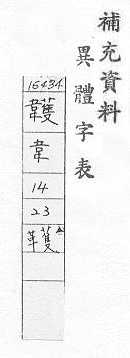 補充資料
異體字表
16434
韄
韋
14
23
韄